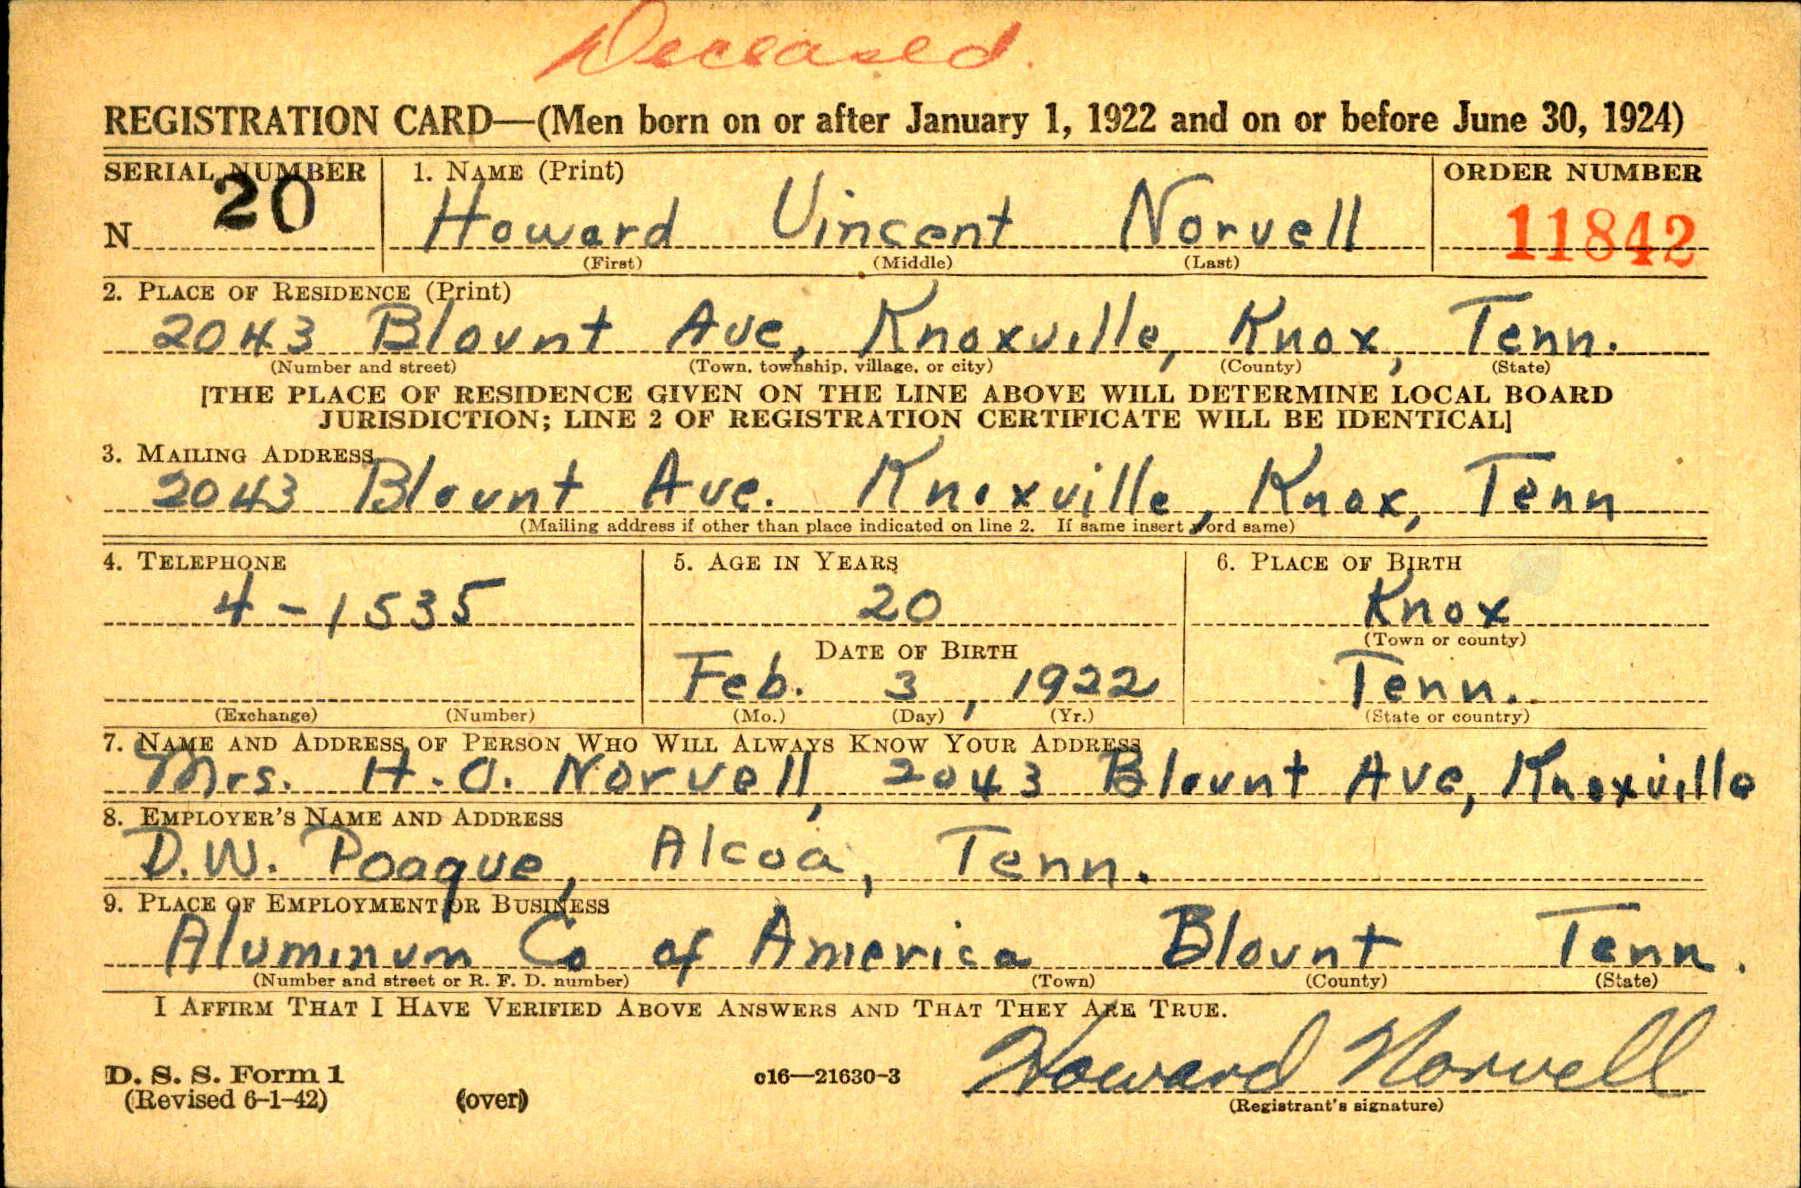 Deceased.
REGISTRATION CARD—(Men born on or after January 1, 1922 and on or before June 30, 1924)
SERIAL NUMBER 1. NAME (Print) ORDER NUMBER
N 20 Howard Vincent Norvell 11842
(First) (Middle) (Last)
2. PLACE OF RESIDENCE (Print)
2043 Blount Ave, Knoxville, Knox, Tenn.
(Number and street) (Town, township, village, or city) (County) (State)
[THE PLACE OF RESIDENCE GIVEN ON THE LINE ABOVE WILL DETERMINE LOCAL BOARD
JURISDICTION; LINE 2 OF REGISTRATION CERTIFICATE WILL BE IDENTICAL]
3. MAILING ADDRESS
2043 Blount Ave. Knoxville, Knox, Tenn
(Mailing address if other than place indicated on line 2. If same insert word same)
4. TELEPHONE 5. AGE IN YEARS 6. PLACE OF BIRTH
4-1535 20 Knox
(Town or county)
DATE OF BIRTH
Feb. 3, 1922 Tenn.
(Exchange) (Number) (Mo.) (Day) (Yr.) (State or country)
7. NAME AND ADDRESS OF PERSON WHO WILL ALWAYS KNOW YOUR ADDRESS
Mrs. H.O. Norvell, 2043 Blount Ave, Knoxville
8. EMPLOYER'S NAME AND ADDRESS
D.W. Poague, Alcoa, Tenn.
9. PLACE OF EMPLOYMENT OR BUSINESS
Aluminum Co of America Blount Tenn.
(Number and street or R. F. D. number) (Town) (County) (State)
I AFFIRM THAT I HAVE VERIFIED ABOVE ANSWERS AND THAT THEY ARE TRUE.
Howard Norvell
D. S. S. Form 1 c16—21630-3
(Revised 6-1-42) (over) (Registrant's signature)